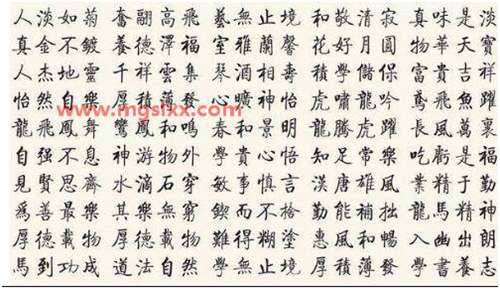 人淡如菊 奮翮高飛 藝無止境 和敬清寂 真味是淡
真金不鍍 養德澤福 室雅蘭馨 花好月圓 物華天寶
人杰地靈 千祥雲集 琴酒相壽 積學儲保 富貴吉祥
怡然自樂 厚積薄發 心曠神怡 虎嘯龍吟 鳶飛魚躍
www.mgslxx.com
龍飛鳳舞 鸞鳳和鳴 春和景明 龍騰虎躍 長風萬裏
自强不息 神游物外 學貴心悟 知足常樂 吃虧是福
見賢思齊 水滴石穿 敏事慎言 漢唐雄風 業精于勤
為善最樂 其樂無窮 鍥而不捨 勤能補拙 龍馬精神
厚德載物 厚德載物 難得糊塗 惠風和暢 入幽出朗
馬到功成 道法自然 學無止境 厚積薄發 學書養志